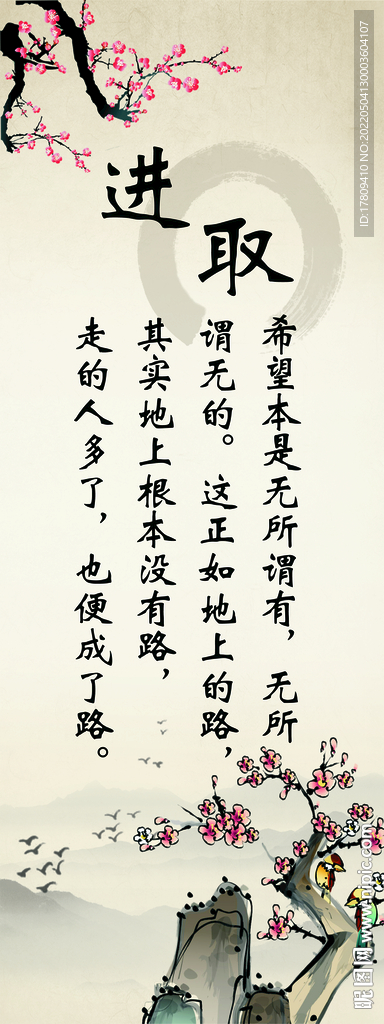 进取
希望本是无所谓有，无所
谓无的。这正如地上的路，
其实地上根本没有路，
走的人多了，也便成了路。
ID:17809410 NO:20220504130003604107
昵图网 www.nipic.com